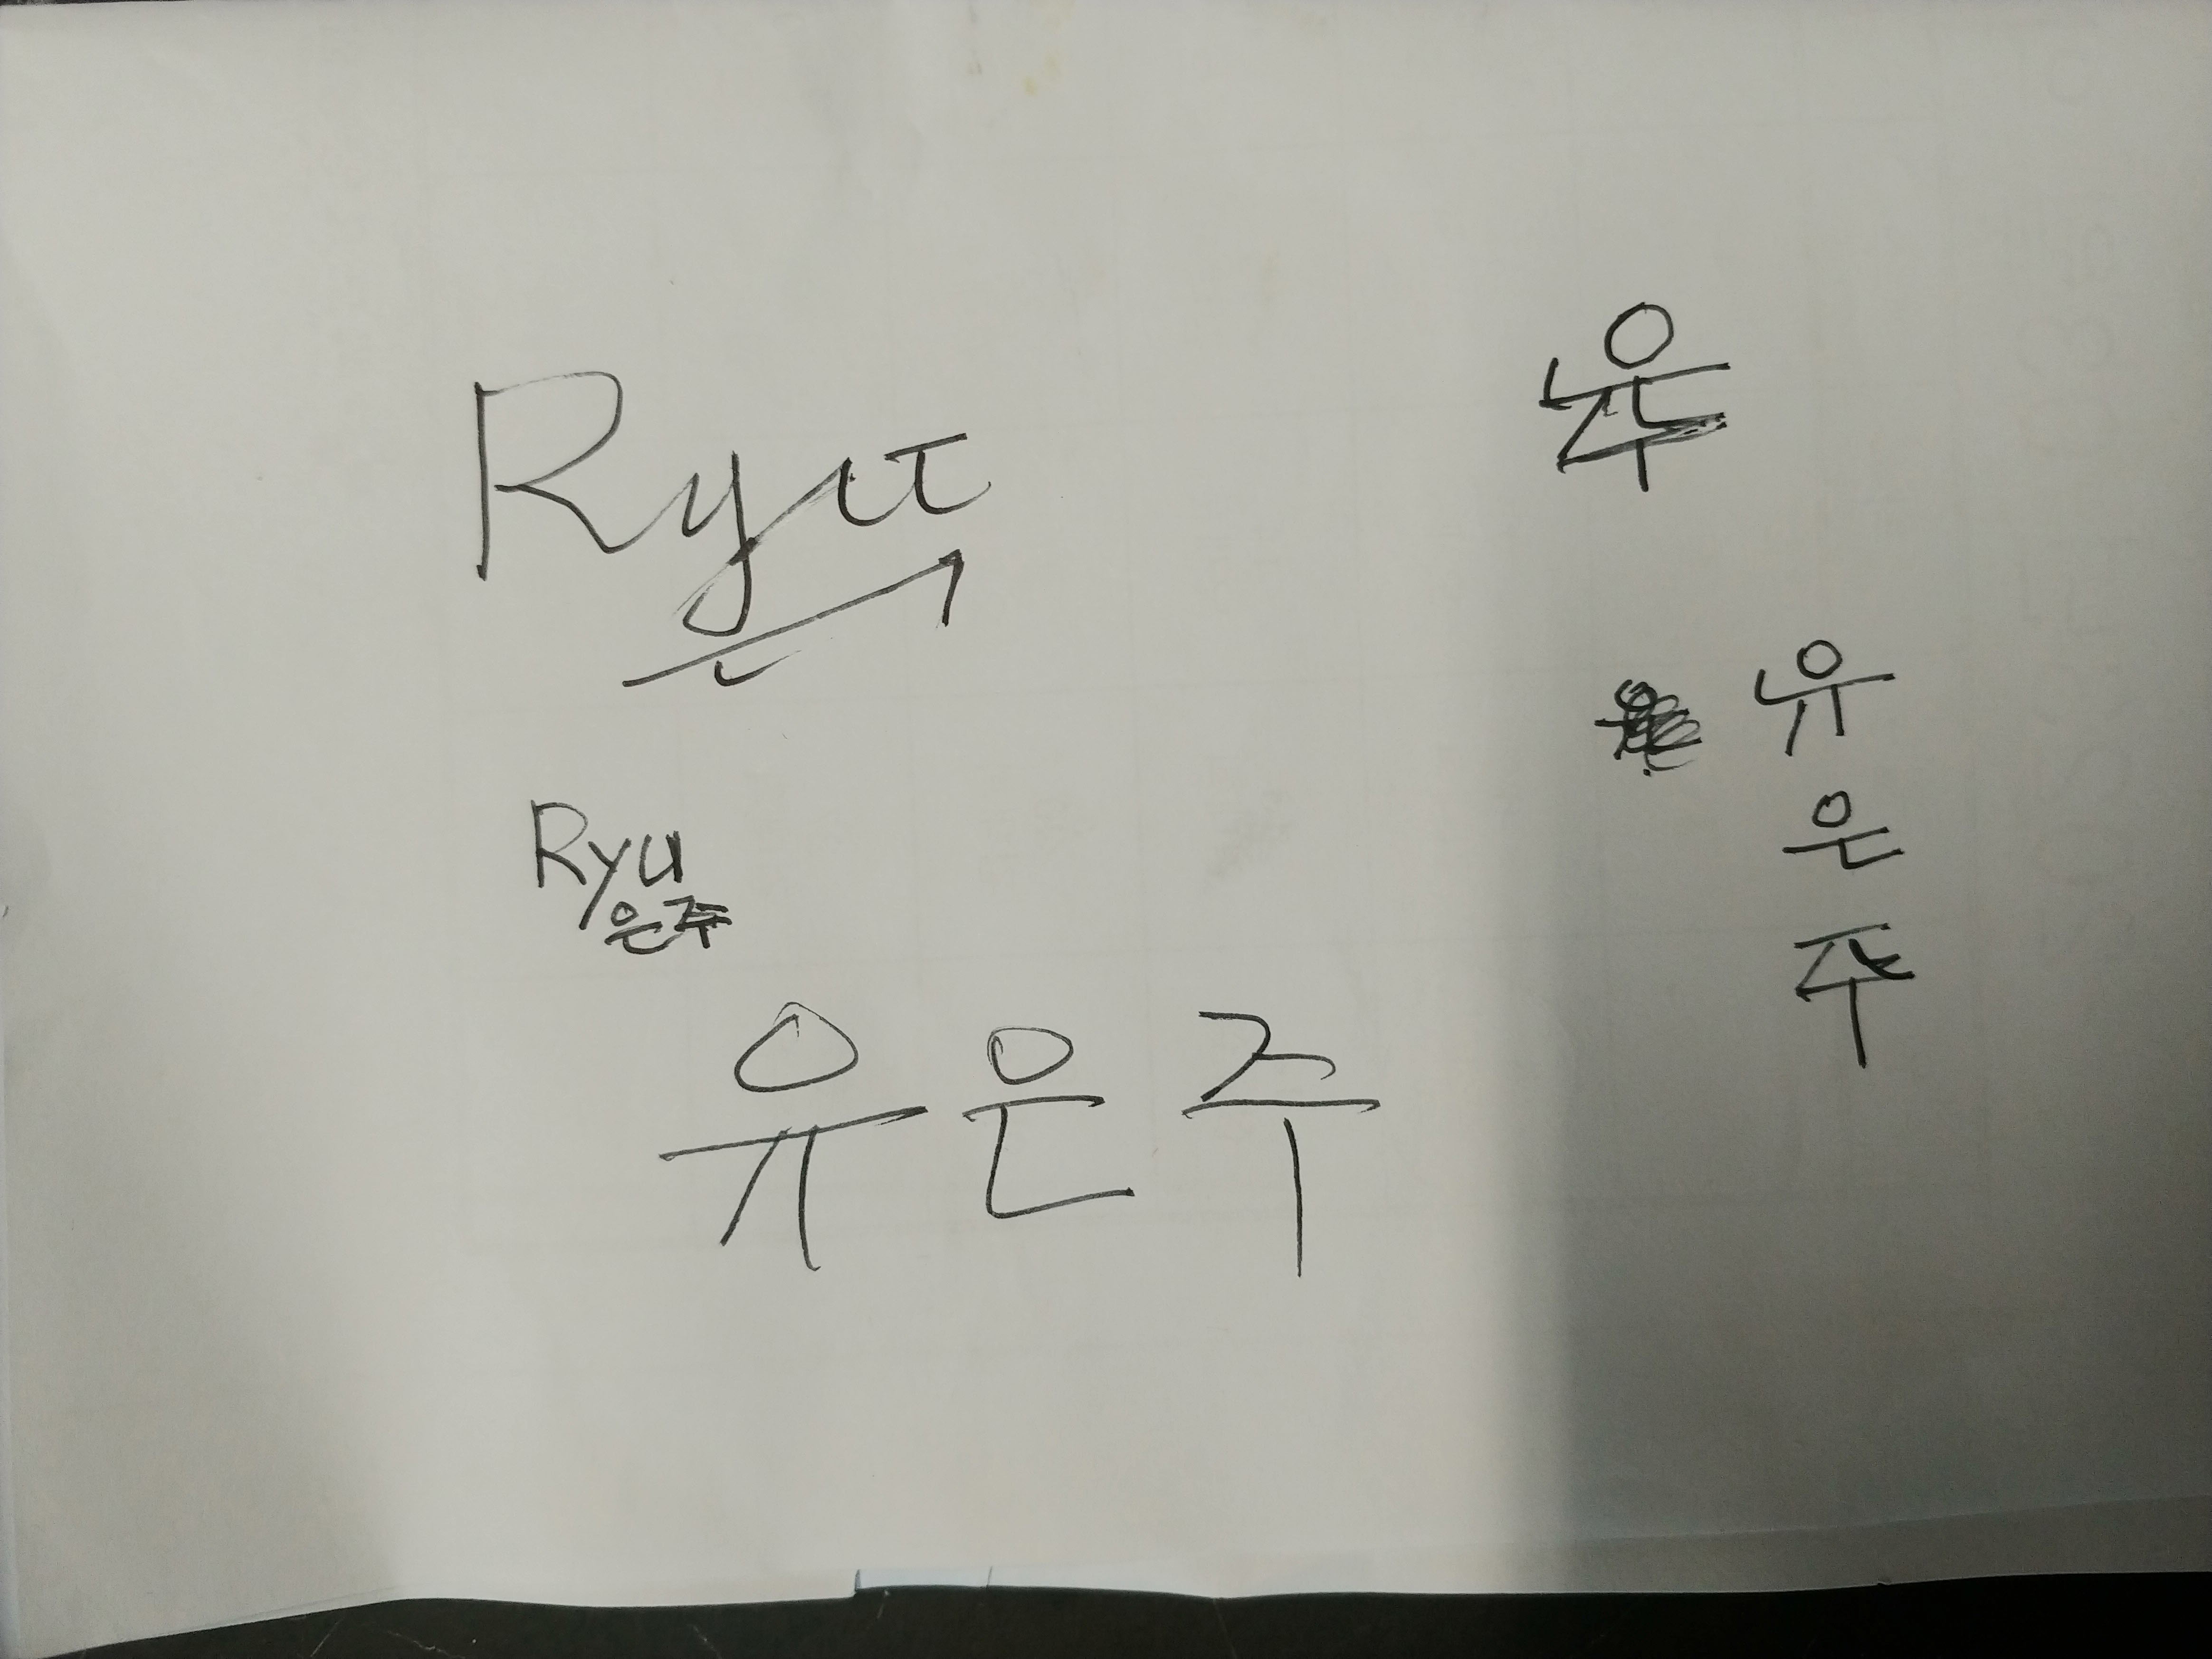 Ryu
Ryu
은주
유은주
유
은
주